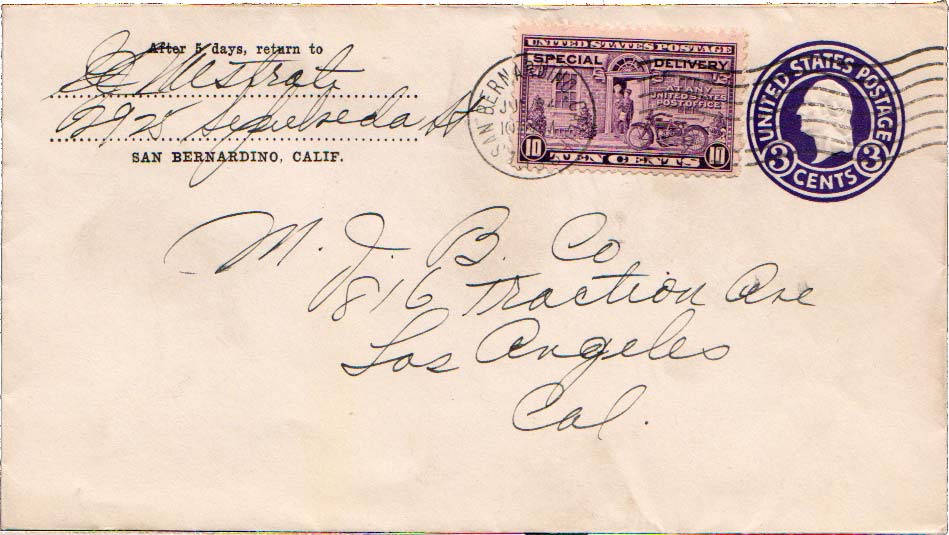 After 5 days, return to
Mestrat
2925 Sepulveda St
SAN BERNARDINO, CALIF.
UNITED STATES POSTAGE
SPECIAL DELIVERY
AT ANY
UNITED STATES
POST OFFICE
10 TEN CENTS 10
SAN BERNARDINO
UNITED STATES POSTAGE
3 CENTS 3
M. J. B. Co
816 Traction Ave
Los Angeles
Cal.